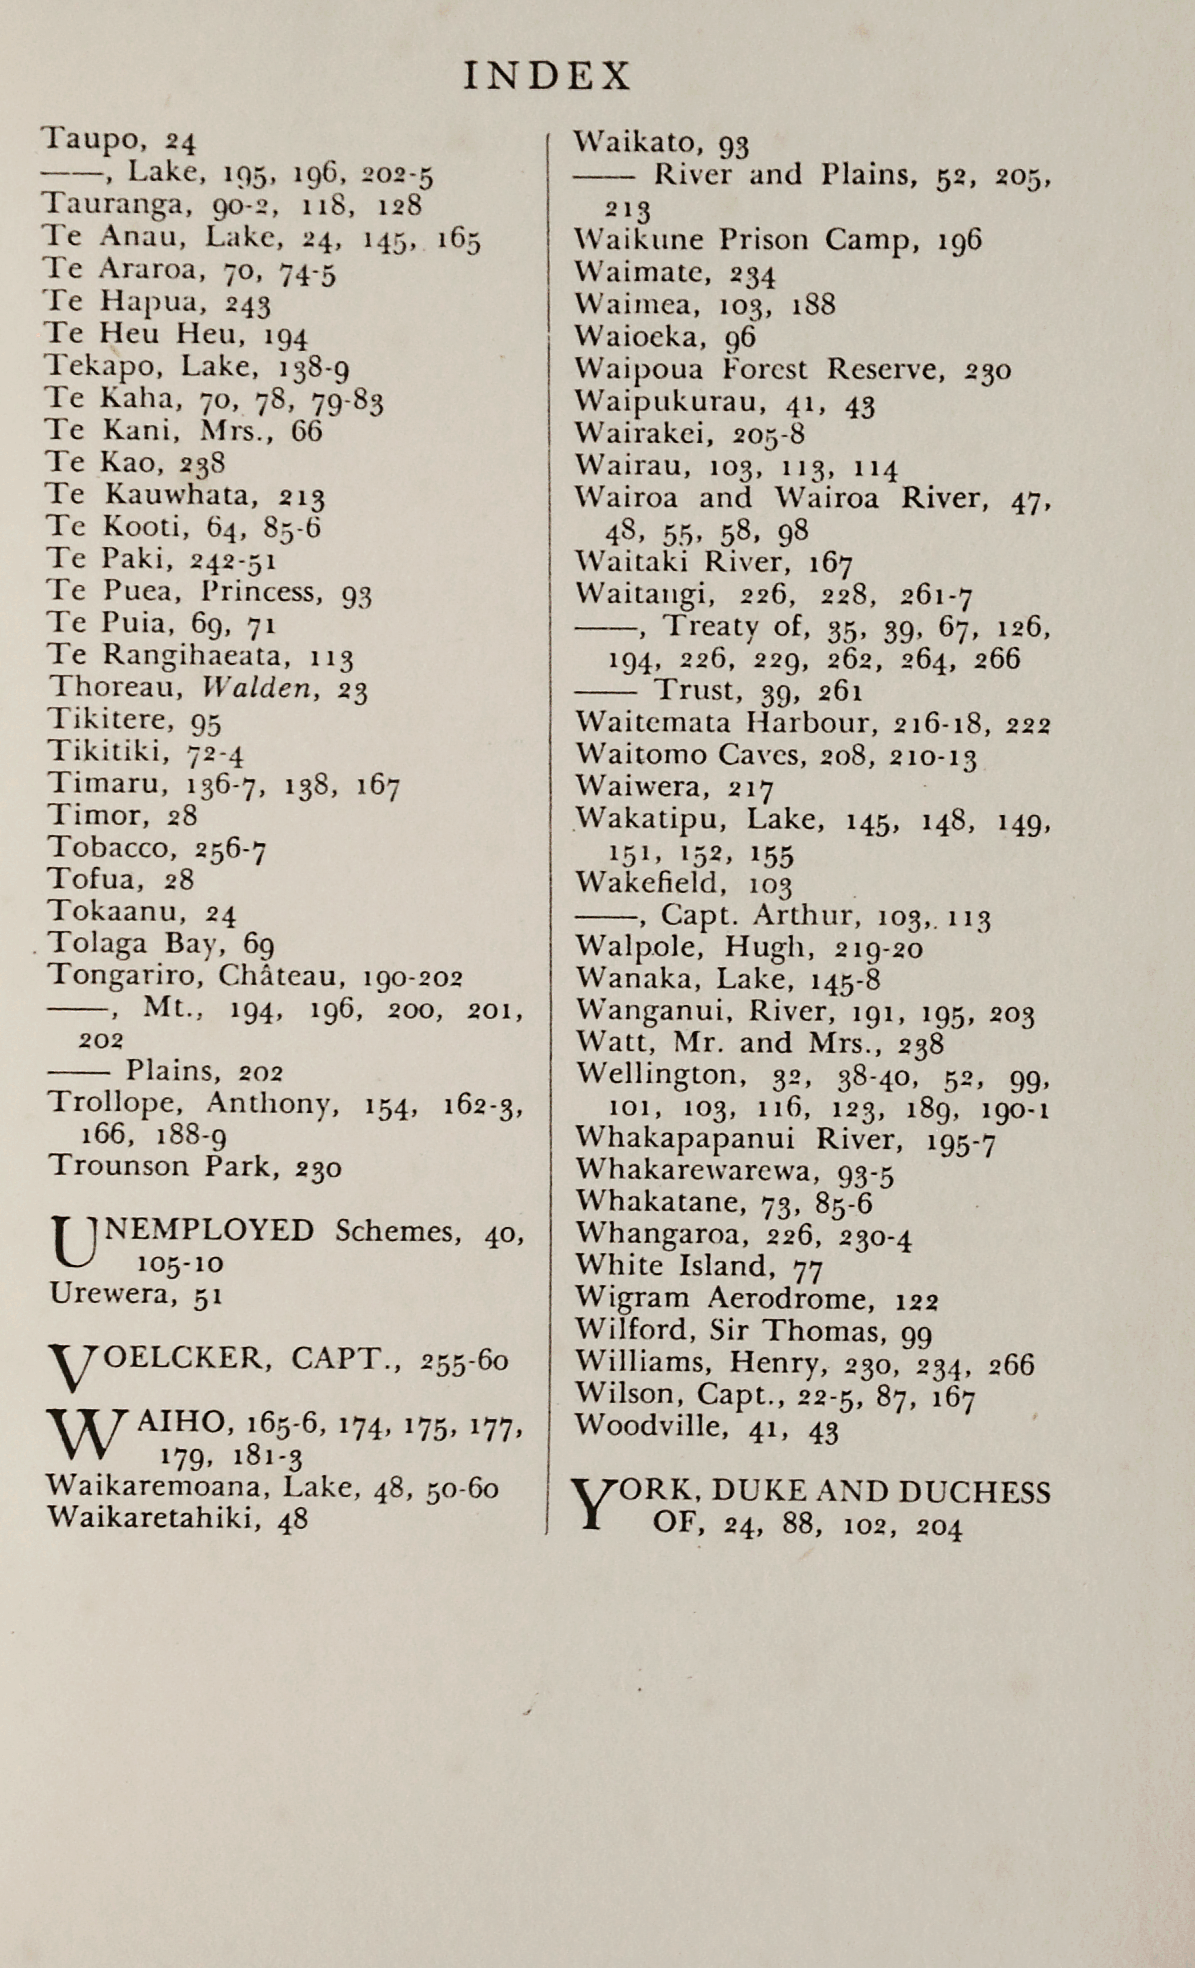 INDEX
Taupo, 24
——, Lake, 195, 196, 202-5
Tauranga, 90-2, 118, 128
Te Anau, Lake, 24, 145, 165
Te Araroa, 70, 74-5
Te Hapua, 243
Te Heu Heu, 194
Tekapo, Lake, 138-9
Te Kaha, 70, 78, 79-83
Te Kani, Mrs., 66
Te Kao, 238
Te Kauwhata, 213
Te Kooti, 64, 85-6
Te Paki, 242-51
Te Puea, Princess, 93
Te Puia, 69, 71
Te Rangihaeata, 113
Thoreau, Walden, 23
Tikitere, 95
Tikitiki, 72-4
Timaru, 136-7, 138, 167
Timor, 28
Tobacco, 256-7
Tofua, 28
Tokaanu, 24
Tolaga Bay, 69
Tongariro, Château, 190-202
——, Mt., 194, 196, 200, 201,
202
—— Plains, 202
Trollope, Anthony, 154, 162-3,
166, 188-9
Trounson Park, 230
UNEMPLOYED Schemes, 40,
105-10
Urewera, 51
VOELCKER, CAPT., 255-60
WAIHO, 165-6, 174, 175, 177,
179, 181-3
Waikaremoana, Lake, 48, 50-60
Waikaretahiki, 48
Waikato, 93
—— River and Plains, 52, 205,
213
Waikune Prison Camp, 196
Waimate, 234
Waimea, 103, 188
Waioeka, 96
Waipoua Forest Reserve, 230
Waipukurau, 41, 43
Wairakei, 205-8
Wairau, 103, 113, 114
Wairoa and Wairoa River, 47,
48, 55, 58, 98
Waitaki River, 167
Waitangi, 226, 228, 261-7
——, Treaty of, 35, 39, 67, 126,
194, 226, 229, 262, 264, 266
—— Trust, 39, 261
Waitemata Harbour, 216-18, 222
Waitomo Caves, 208, 210-13
Waiwera, 217
Wakatipu, Lake, 145, 148, 149,
151, 152, 155
Wakefield, 103
——, Capt. Arthur, 103, 113
Walpole, Hugh, 219-20
Wanaka, Lake, 145-8
Wanganui, River, 191, 195, 203
Watt, Mr. and Mrs., 238
Wellington, 32, 38-40, 52, 99,
101, 103, 116, 123, 189, 190-1
Whakapapanui River, 195-7
Whakarewarewa, 93-5
Whakatane, 73, 85-6
Whangaroa, 226, 230-4
White Island, 77
Wigram Aerodrome, 122
Wilford, Sir Thomas, 99
Williams, Henry, 230, 234, 266
Wilson, Capt., 22-5, 87, 167
Woodville, 41, 43
YORK, DUKE AND DUCHESS
OF, 24, 88, 102, 204